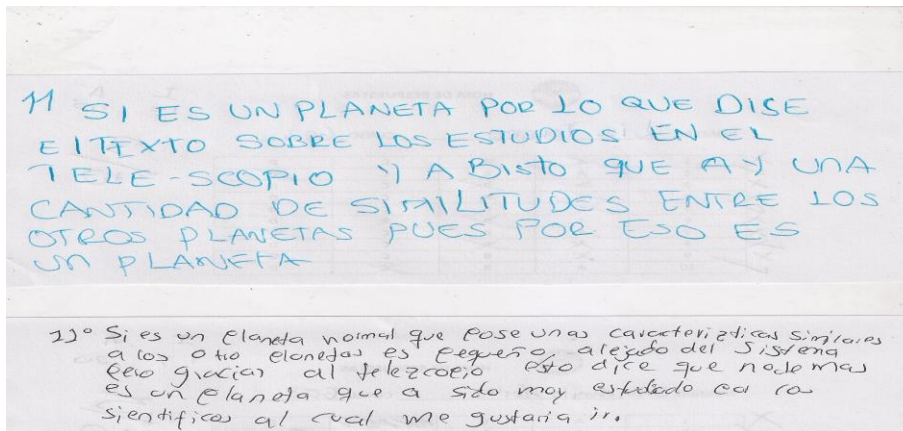 11 SI ES UN PLANETA POR LO QUE DISE
El TEXTO SOBRE LOS ESTUDIOS EN EL
TELE-SCOPIO Y A BISTO QUE AY UNA
CANTIDAD DE SIMILITUDES ENTRE LOS
OTROS PLANETAS PUES POR ESO ES
UN PLANETA
11° Si es un planeta normal que pose unas caracterizticas similares
a los otro planetas es pequeño, alejado del Sistema
pero gracias al telezcopio esto dice que
es un planeta que a sido muy
sientificos al cual me gustaria ir.